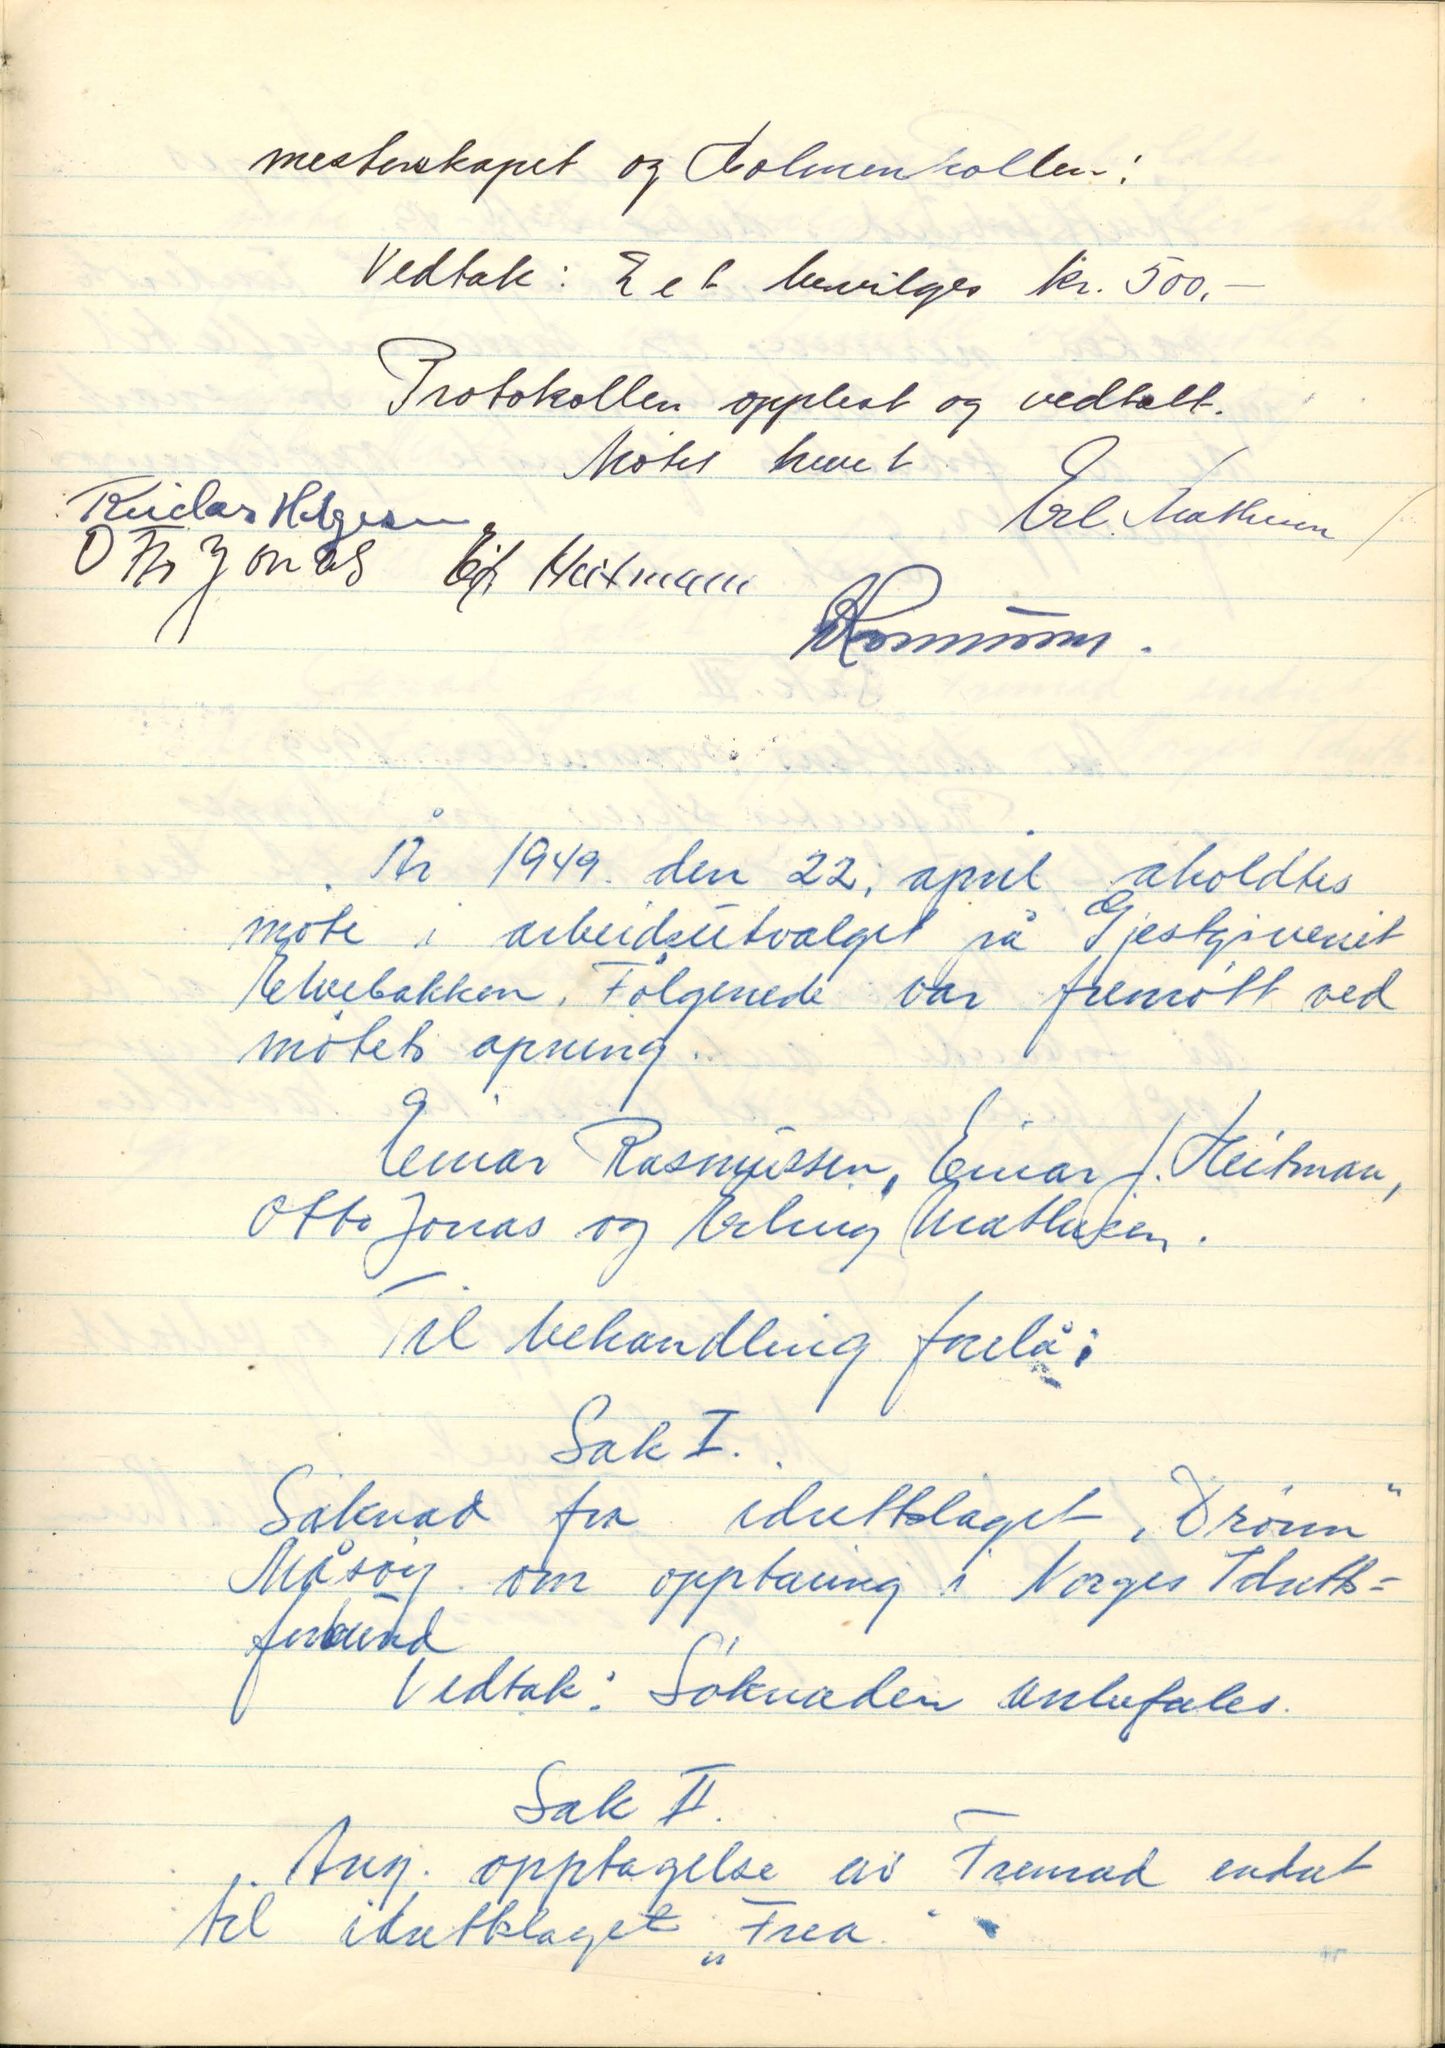 mesterskapet og Holmenkollen:
Vedtak: Det bevilges kr. 500,-
Protokollen opplest og vedtatt.
Møtet hevet.
Erl. Mathisen
Reidar Helgesen
Otto Jonas Ejt Heitmann
ERasmussen.
År 1949. den 22. april aholdtes
møte i arbeidsutvalget på Gjestgiveriet
Elvebakken. Følgenede var fremøtt ved
møtets åpning.
Einar Rasmussen, Einar J. Heitman,
Otto Jonas og Erling Mathisen.
Til behandling forelå:
Sak I.
Søknad fra idrettslaget „Drønn"
Måsøy om opptaing i Norges Idretts=
forbund
Vedtak: Søknaden anbefales.
Sak II.
Ang. opptagelse av Fremad endret
til idrettslaget „Frea"